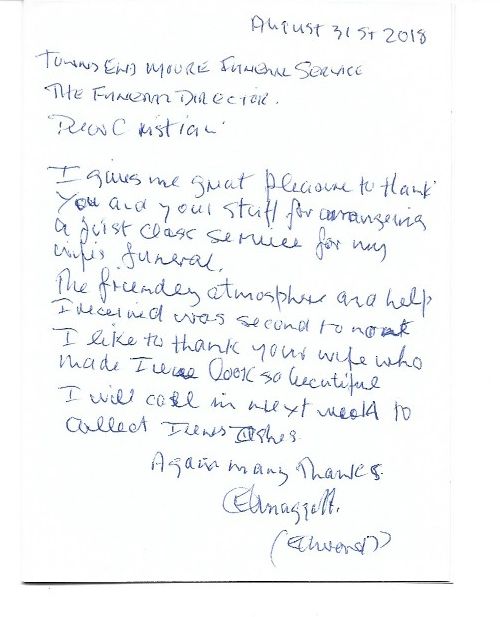 AUGUST 31ST 2018
TOWNSEND MOORE FUNERAL SERVICE
THE FUNERAL DIRECTOR.
Dear Cristian
I gives me great pleasure to thank
You and your staff for arrangeing
a first class service for my
wifes funeral.
The friendly atmosphere and help
I received was second to none
I like to thank your wife who
made Irene look so beautiful
I will call in next week to
collect Irenes Ashes
Again many Thanks.
(Edward)